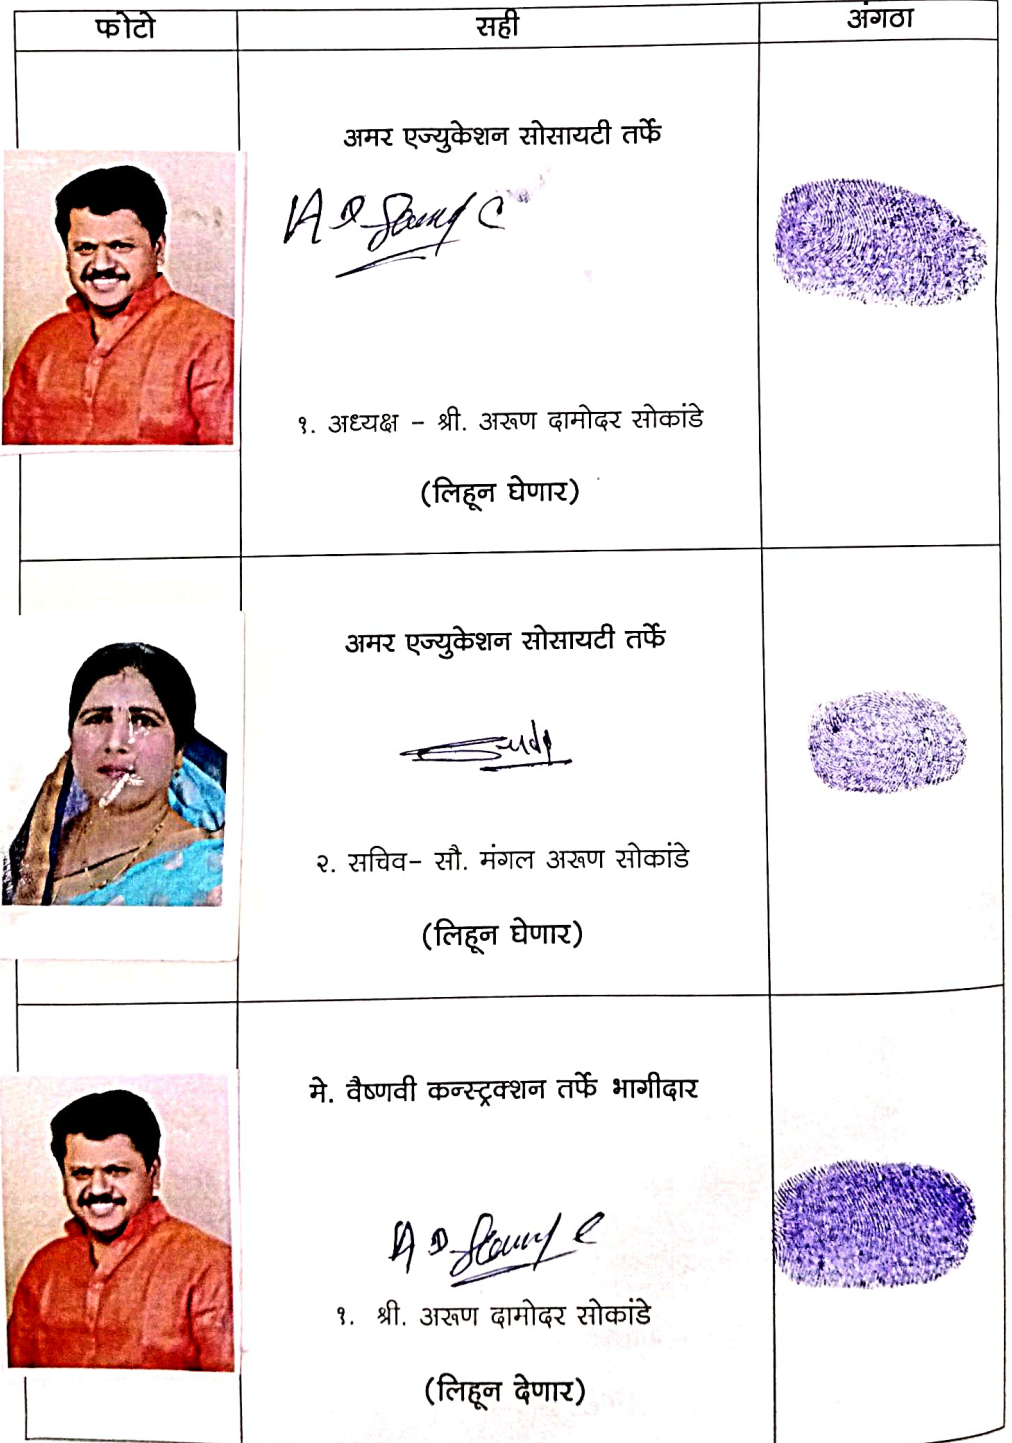 फोटो सही अंगठा
अमर एज्युकेशन सोसायटी तर्फे
१. अध्यक्ष - श्री. अरूण दामोदर सोकांडे
(लिहून घेणार)
अमर एज्युकेशन सोसायटी तर्फे
२. सचिव- सौ. मंगल अरूण सोकांडे
(लिहून घेणार)
मे. वैष्णवी कन्स्ट्रक्शन तर्फे भागीदार
१. श्री. अरूण दामोदर सोकांडे
(लिहून देणार)